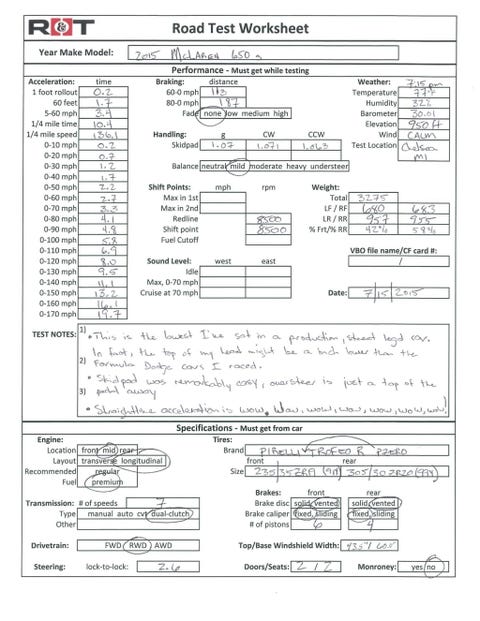 R&T Road Test Worksheet
Year Make Model: 2015 McLaren 650 s
Performance - Must get while testing
Acceleration: time Braking: distance Weather: 7:15 pm
1 foot rollout 0.2 60-0 mph 113 Temperature 77°F
60 feet 1.7 80-0 mph 187 Humidity 32%
5-60 mph 3.4 Fade none low medium high Barometer 30.01
1/4 mile time 10.4 Elevation 950 ft
1/4 mile speed 136.1 Handling: g CW CCW Wind CALM
0-10 mph 0.2 Skidpad 1.07 1.071 1.063 Test Location Chelsea
0-20 mph 0.7 MI
0-30 mph 1.2 Balance neutral mild moderate heavy understeer
0-40 mph 1.7
0-50 mph 2.2 Shift Points: mph rpm Weight:
0-60 mph 2.7 Max in 1st Total 3275
0-70 mph 3.3 Max in 2nd LF / RF 680 683
0-80 mph 4.1 Redline 8500 LR / RR 957 955
0-90 mph 4.8 Shift point 8500 % Frt/% RR 42% 58%
0-100 mph 5.8 Fuel Cutoff
0-110 mph 6.9 VBO file name/CF card #:
0-120 mph 8.0 Sound Level: west east /
0-130 mph 9.5 Idle
0-140 mph 11.1 Max, 0-70 mph
0-150 mph 13.2 Cruise at 70 mph Date: 7/15/2015
0-160 mph 16.1
0-170 mph 19.7
TEST NOTES: 1) • This is the lowest I've sat in a production, street legal car.
In fact, the top of my head might be a inch lower than the
2) Formula Dodge cars I raced.
• Skidpad was remarkably easy, oversteer is just a tap of the
3) pedal away
• Straightline acceleration is wow. Wow, wow, wow, wow, wow, wow, wow!
Specifications - Must get from car
Engine: Tires:
Location front mid rear Brand PIRELLI TROFEO R PZERO
Layout transverse longitudinal front rear
Recommended regular Size 235/35ZR19 (91Y) 305/30ZR20 (99Y)
Fuel premium
Brakes: front rear
Transmission: # of speeds 7 Brake disc solid vented solid vented
Type manual auto cvt dual-clutch Brake caliper fixed, sliding fixed, sliding
Other # of pistons 6 4
Drivetrain: FWD RWD AWD Top/Base Windshield Width: 43.5"/ 60.0"
Steering: lock-to-lock: 2.6 Doors/Seats: 2 / 2 Monroney: yes/no